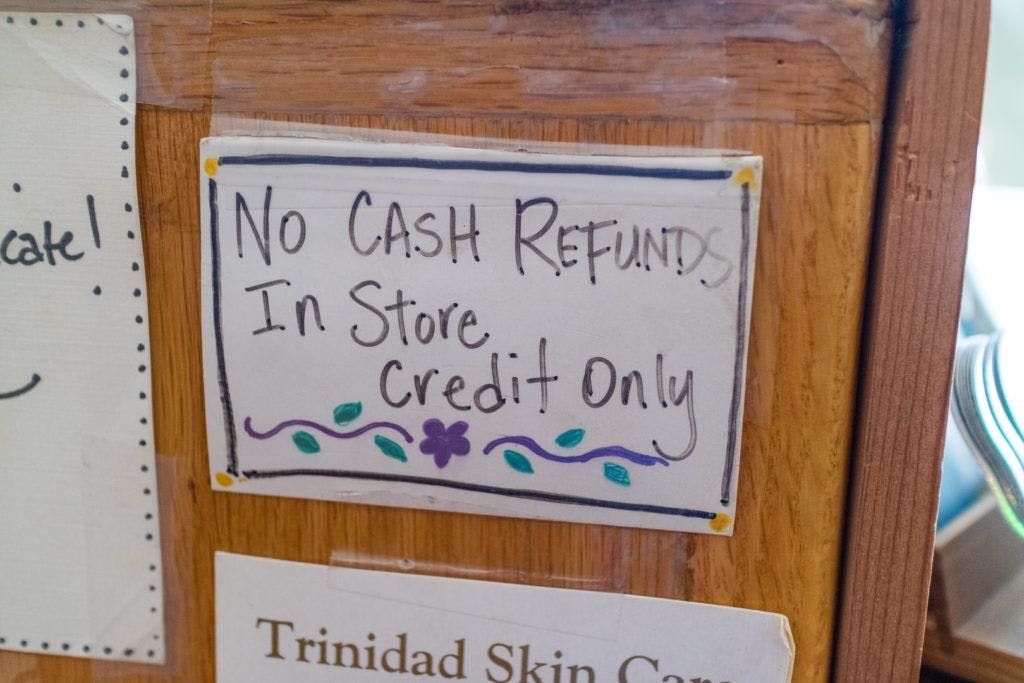 cate!
No CASH REFUNDS
In Store
Credit Only
Trinidad Skin Care